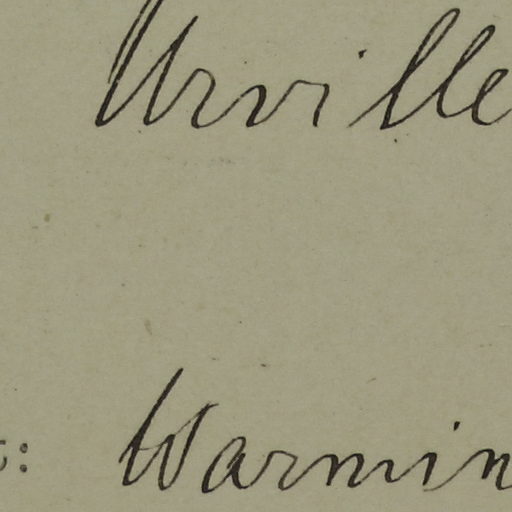 Urville
t: Warmin